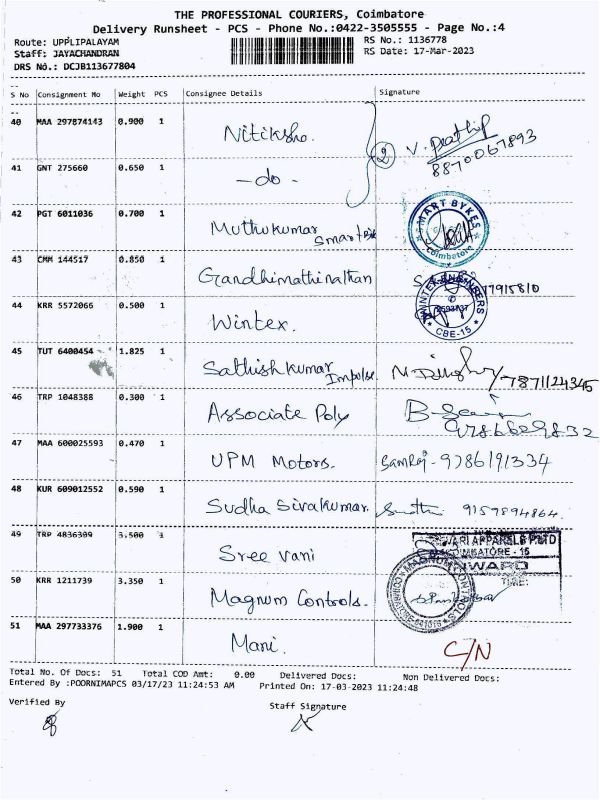 THE PROFESSIONAL COURIERS, Coimbatore
Delivery Runsheet - PCS - Phone No.:0422-3505555 - Page No.:4
Route: UPPLIPALAYAM
RS No.: 1136778
Staff: JAYACHANDRAN
RS Date: 17-Mar-2023
DRS No.: DCJB113677804
S No Consignment No Weight PCS Consignee Details Signature
40 MAA 297874143 0.900 1 Nitiksha. V. Prathip
8870067893
41 GNT 275660 0.650 1 - do - 2
42 PGT 6011036 0.700 1 Muthukumar Smart SMART BYKES Coimbatore
43 CMM 144517 0.850 1 Gandhimathinathan
44 KRR 5572066 0.500 1 Wintex. WINTEX ENGINEERS CBE-15
45 TUT 6400454 1.825 1 Sathishkumar Impulse. 7871124345
46 TRP 1048388 0.300 1 Associate Poly
47 MAA 600025593 0.470 1 UPM Motors. Samraj - 9786191334
48 KUR 609012552 0.590 1 Sudha Sivakumar. 9159894864.
49 TRP 4836309 3.500 1 Sree vani APPARELS P LTD
COIMBATORE - 15
INWARD
TIME:
50 KRR 1211739 3.350 1 Magnum Controls. MAGNUM CONTROLS
51 MAA 297733376 1.900 1 Mani. C/N
Total No. Of Docs: 51 Total COD Amt: 0.00 Delivered Docs: Non Delivered Docs:
Entered By :POORNIMAPCS 03/17/23 11:24:53 AM Printed On: 17-03-2023 11:24:48
Verified By
Staff Signature